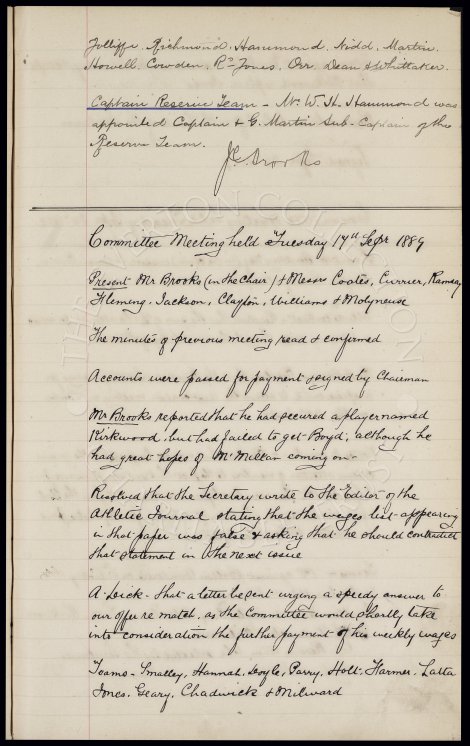 Jolliffe. Richmond. Hammond. Nidd. Martin.
Howell. Cowden. Rs Jones. Orr. Dean & Whittaker.
Captain Reserve Team - Mr W. H. Hammond was
appointed Captain & G. Martin Sub-Captain of the
Reserve Team.
J C Brooks
Committee Meeting held Tuesday 17th Sepr 1889
Present Mr Brooks (in the Chair) & Messrs Coates, Currier, Ramsay
Fleming, Jackson, Clayton, Williams & Molyneux
The minutes of previous meeting read & confirmed
Accounts were passed for payment & signed by Chairman
Mr Brooks reported that he had secured a player named
Kirkwood, but had failed to get Boyd, although he
had great hopes of McMillan coming on.
Resolved that the Secretary write to the Editor of the
Athletic Journal stating that the wages list appearing
in that paper was false & asking that he should contradict
that statement in the next issue
A Dick - that a letter be sent urging a speedy answer to
our offer re match, as the Committee would shortly take
into consideration the further payment of his weekly wages
Teams - Smalley, Hannah, Doyle, Parry, Holt, Farmer, Latta
Jones. Geary, Chadwick & Milward